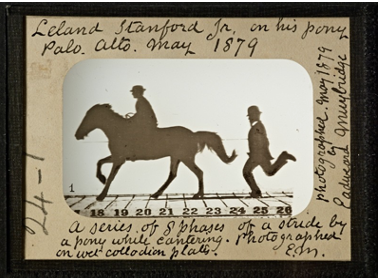 Leland Stanford Jr. on his pony
Palo Alto. May 1879
photographed May 1879
by
Eadweard Muybridge
24-1
1
18 19 20 21 22 23 24 25 26
A series of 8 phases of a stride by
a pony while cantering. Photographed
on wet collodion plates. E.M.